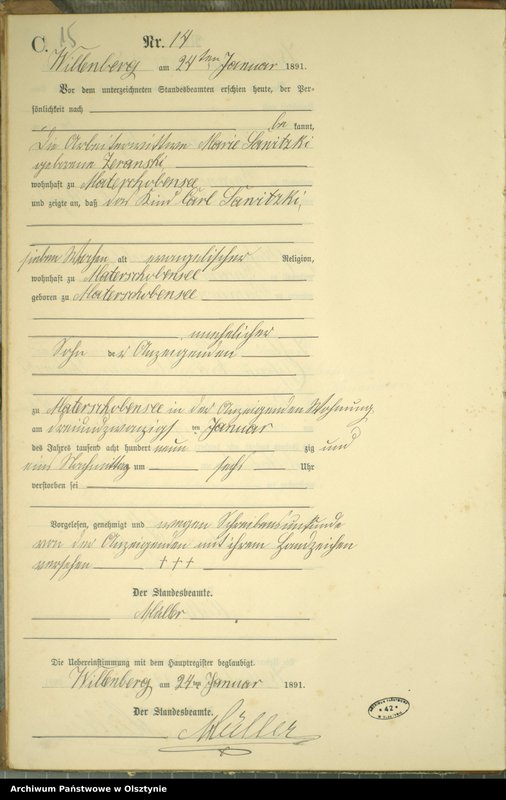 C. 15
Nr. 14
Willenberg am 24ten Januar 1891.
Vor dem unterzeichneten Standesbeamten erschien heute, der Per-
sönlichkeit nach
be kannt,
Die Arbeiterwittwe Marie Sawitzki
geborene Zeranski
wohnhaft zu Materschobensee
und zeigte an, daß das Kind Carl Sawitzki,
sieben Wochen alt evangelischer Religion,
wohnhaft zu Materschobensee
geboren zu Materschobensee
unehelicher
Sohn der Anzeigenden
zu Materschobensee in der Anzeigenden Wohnung
am dreiundzwanzigsten Januar
des Jahres tausend acht hundert neun zig und
eins Nachmittag um sechs Uhr
verstorben sei
Vorgelesen, genehmigt und wegen Schreibensunkunde
von der Anzeigenden mit ihrem Handzeichen
versehen +++
Der Standesbeamte.
Müller
Die Uebereinstimmung mit dem Hauptregister beglaubigt.
Willenberg am 24ten Januar 1891.
Der Standesbeamte.
Müller
* 42 *
Archiwum Państwowe w Olsztynie